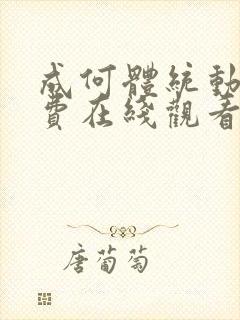 成何體統動
費在綫觀看
唐葡萄